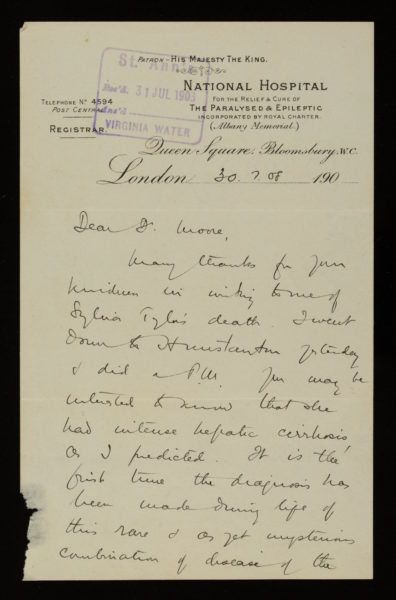 PATRON - HIS MAJESTY THE KING.
St. Ann's
Rec'd. 31 JUL 1908
Ans'd.
VIRGINIA WATER
NATIONAL HOSPITAL
FOR THE RELIEF & CURE OF
THE PARALYSED & EPILEPTIC
INCORPORATED BY ROYAL CHARTER.
(Albany Memorial.)
TELEPHONE No 4594
POST CENTRAL
REGISTRAR.
Queen Square, Bloomsbury, W.C.
London, 30. 7. 08 190
Dear Dr. Moore,
Many thanks for your
kindness in writing to me of
Sylvia Tyla's death. I went
down to Hunstanton yesterday
& did a P.M. You may be
interested to know that she
had intense hepatic cirrhosis,
as I predicted. It is the
first time the diagnosis has
been made during life of
this rare & as yet mysterious
combination of disease of the